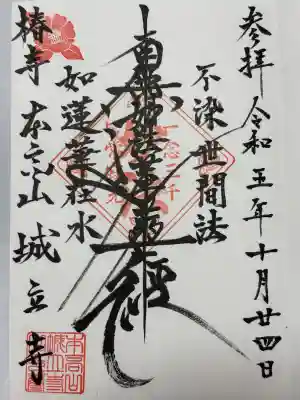 参拝 令和五年十月廿四日
不染世間法
南無妙法蓮華経
如蓮華在水
椿寺 本立山 城立寺